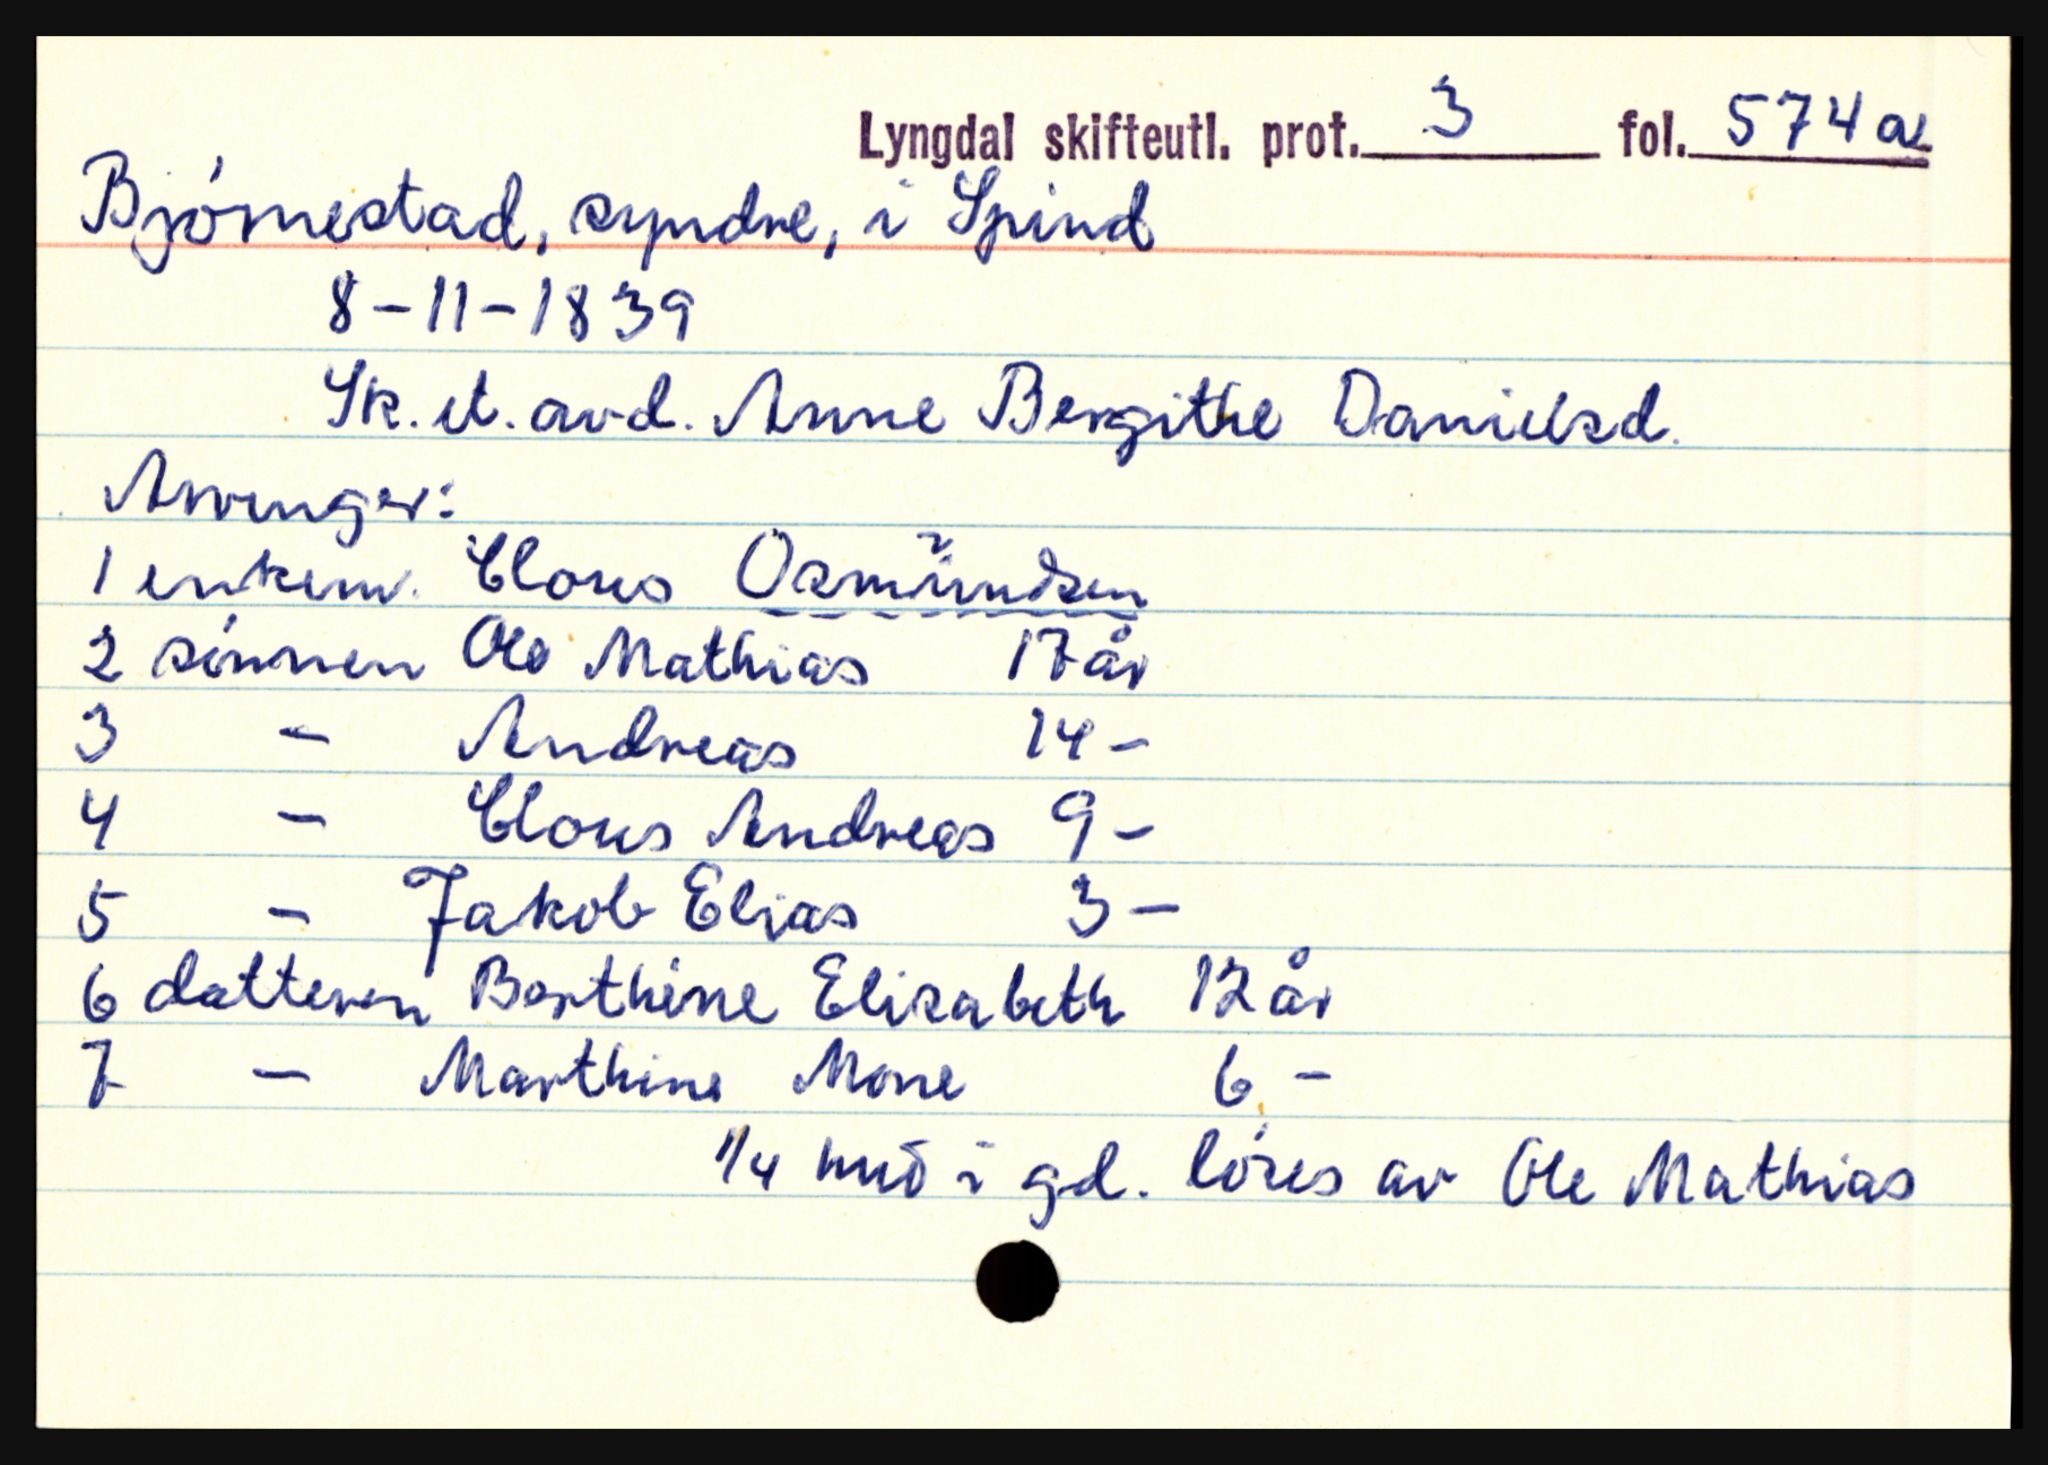 Lyngdal skifteutl. prot. 3 fol. 574a
Bjórnestad, syndre, i Spind
8-11-1839
Sk. et. avd. Anne Bergithe Danielsd.
Arvinger:
1 enkem. Claus Osmundsen
2 sónnen Ole Mathias 17 år
3 - Andreas 14 -
4 - Claus Andreas 9 -
5 - Jakob Elias 3 -
6 datteren Berthine Elisabeth 12 år
7 - Marthine Mone 6 -
1/4 hud i gd. lóses av Ole Mathias